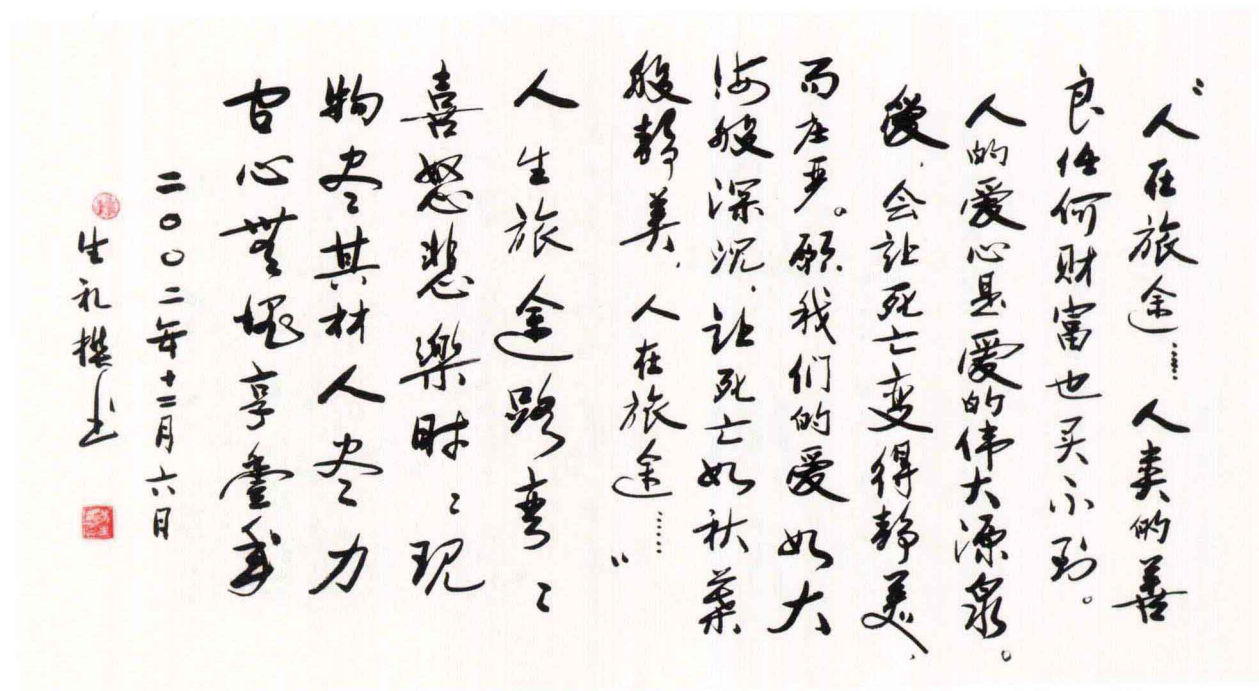 “人在旅途……人类的善
良任何财富也买不到。
人的爱心是爱的伟大源泉。
爱，会让死亡变得静美，
而庄严。愿我们的爱如大
海般深沉，让死亡如秋叶
般静美，人在旅途……”
人生旅途路弯〻
喜怒悲乐时〻现
物尽其材人尽力
官心无愧享
二〇〇二年十二月六日
生礼撰书